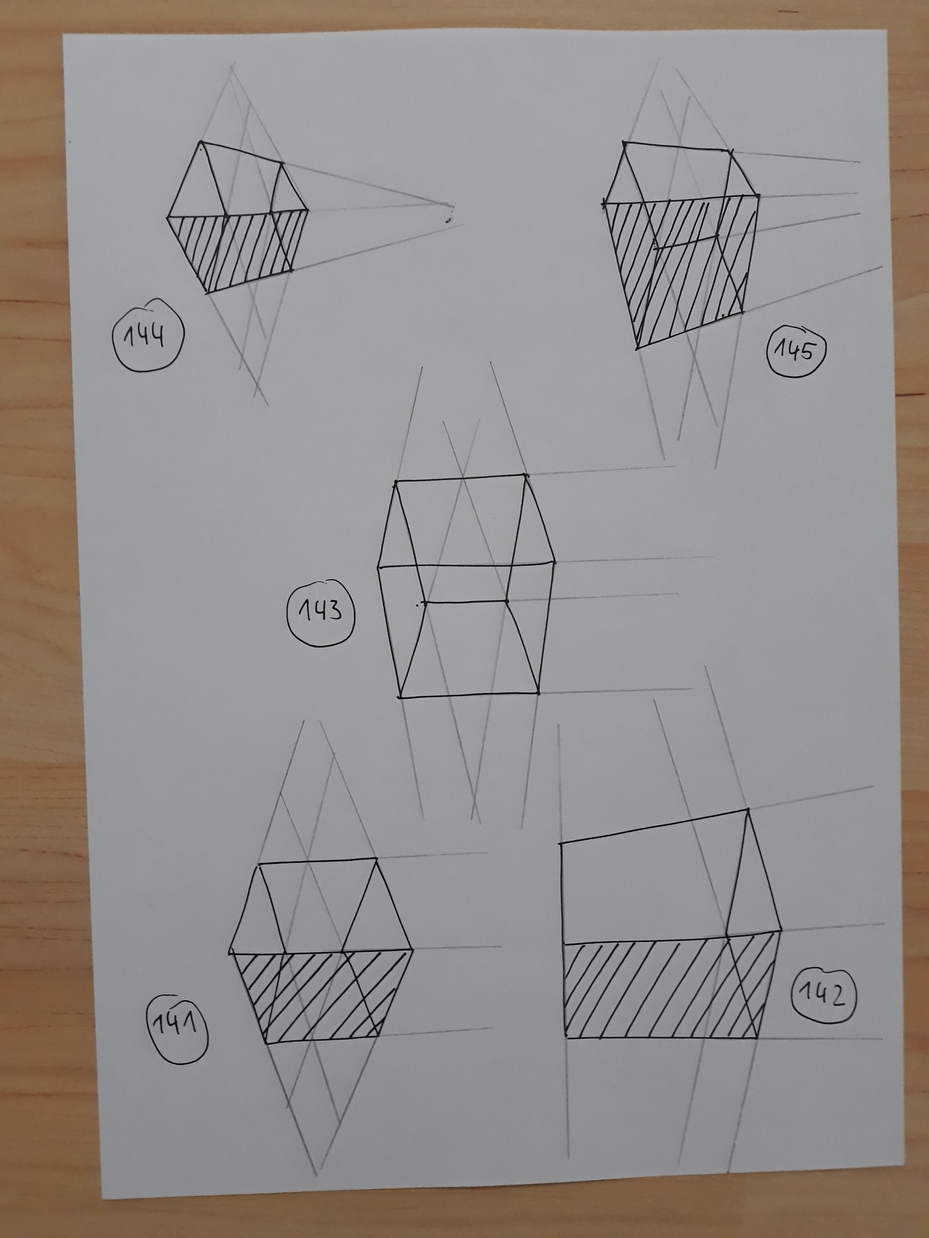 144
145
143
141
142